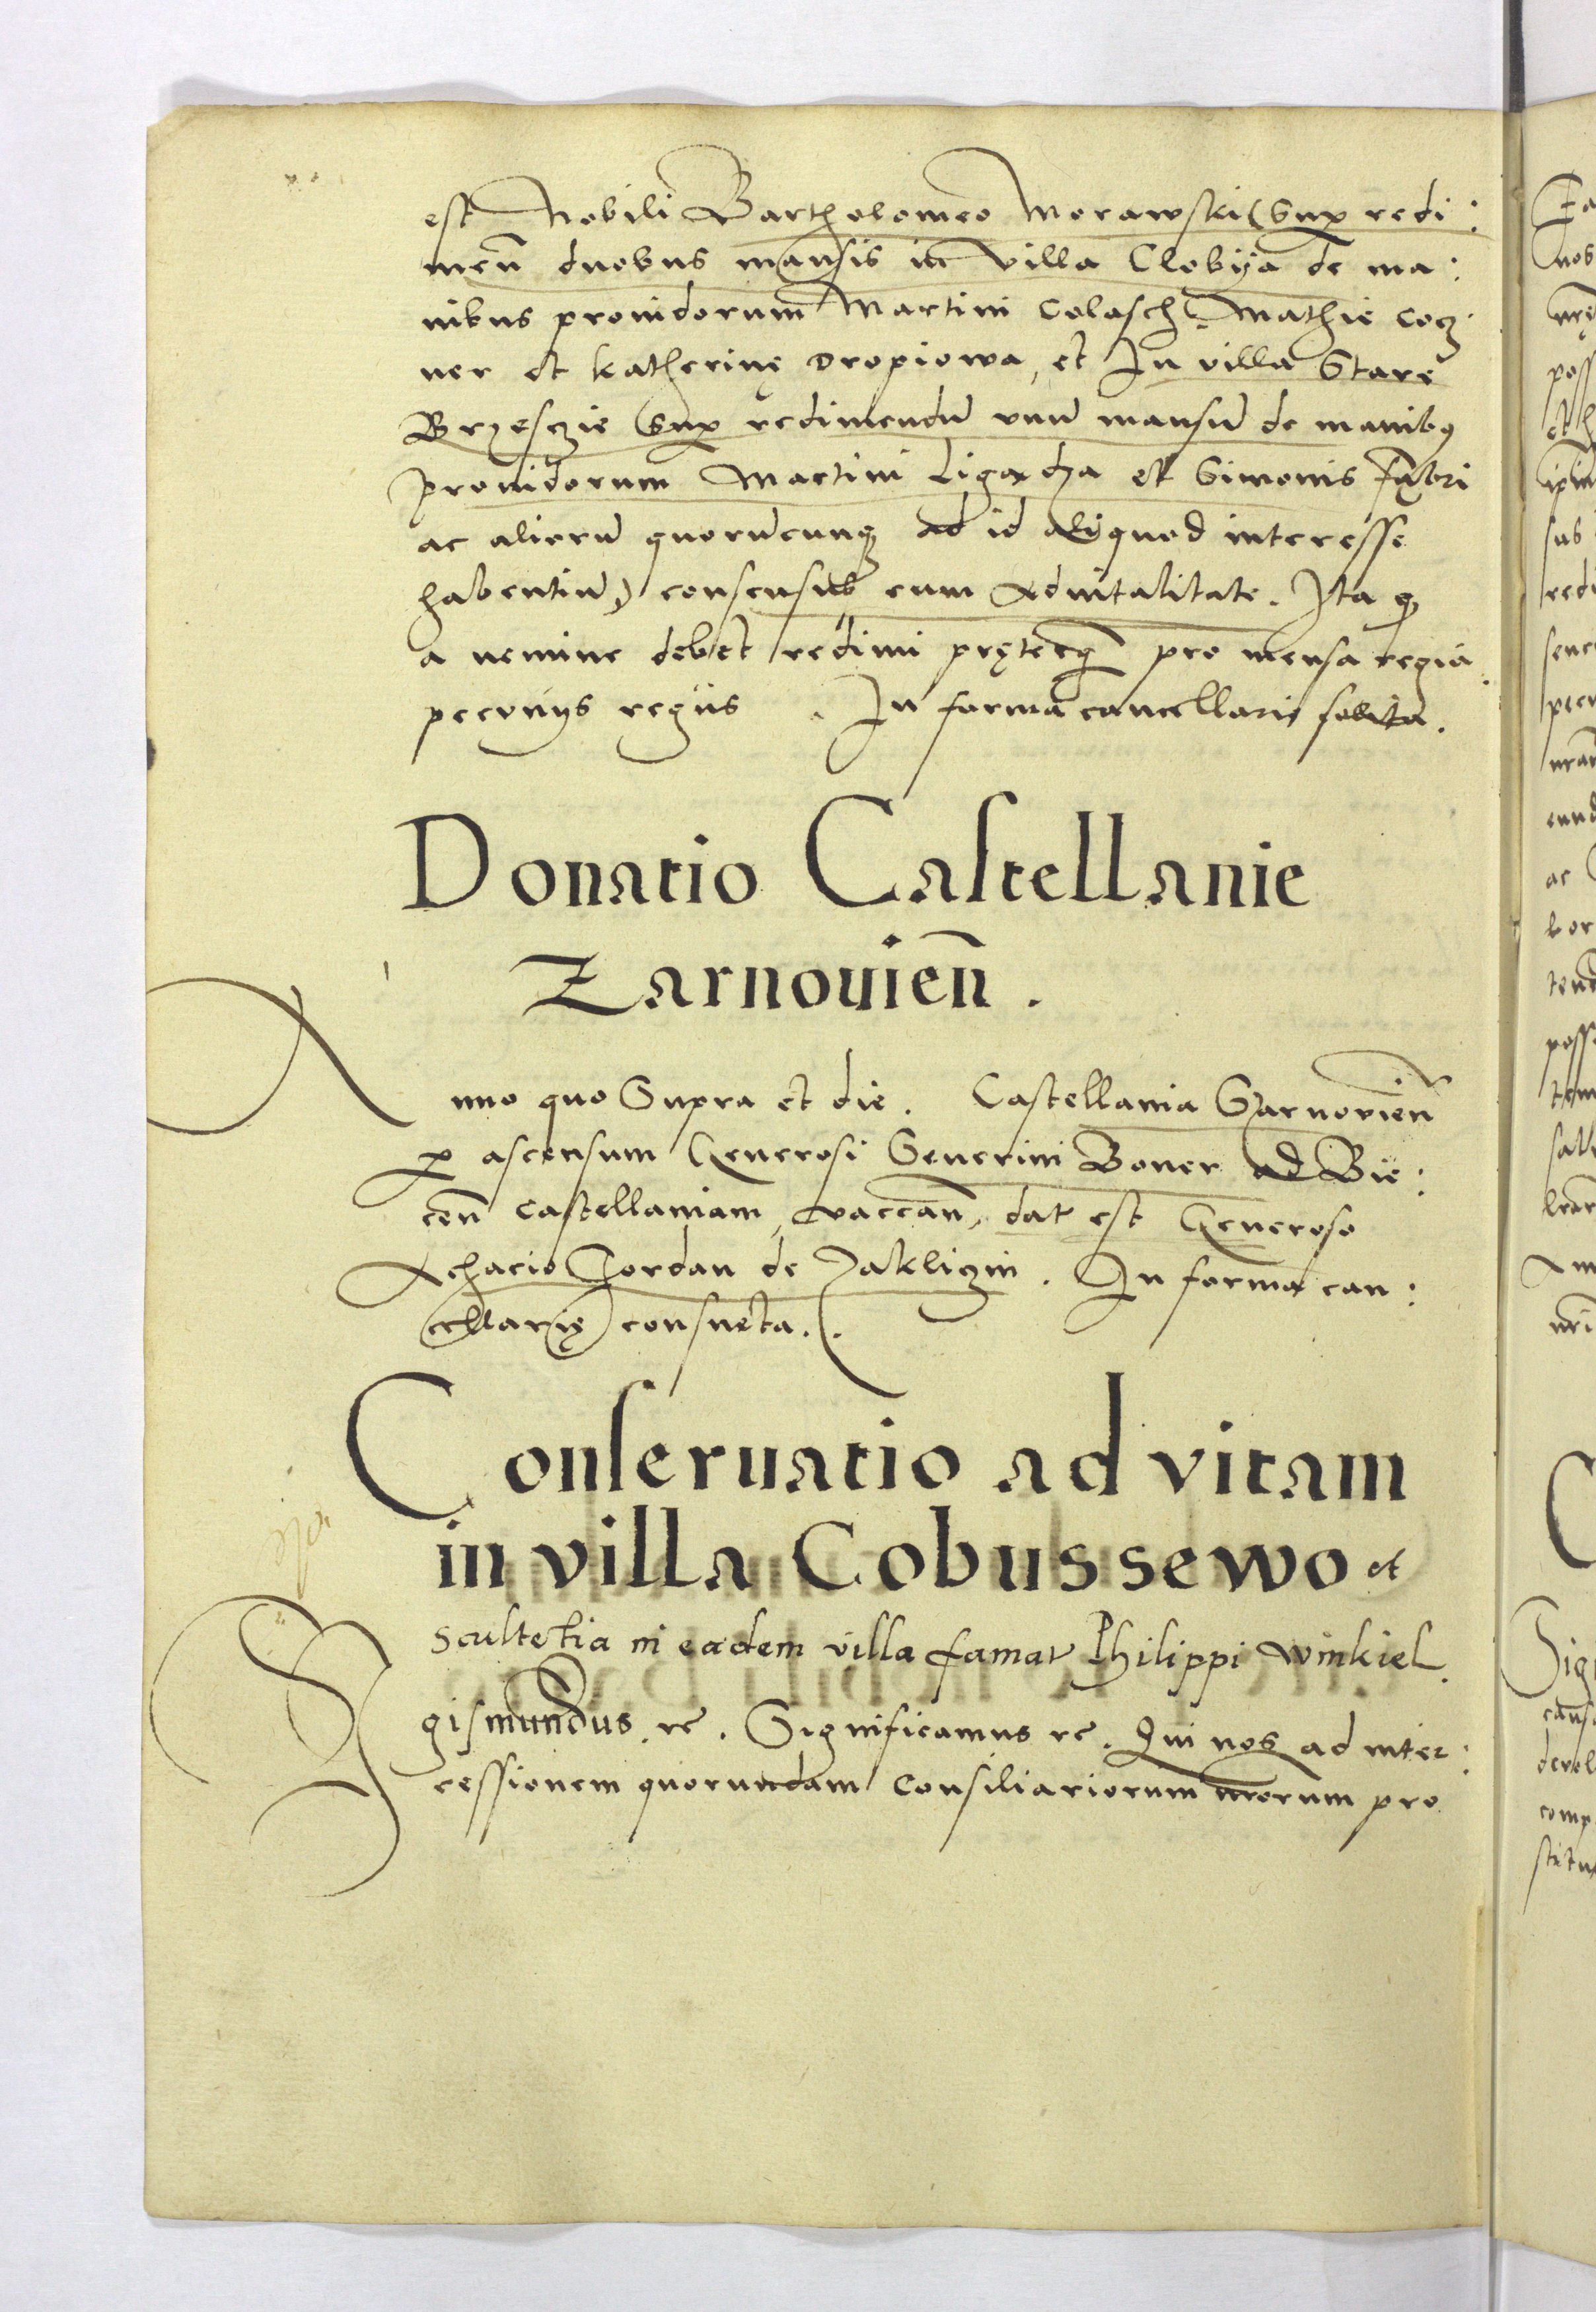 est Nobili Bartholomeo Morawski (Sup redi:
men̄ duobus mansis in villa Clobya de ma:
nibus prouidorum Martini Colasch Mathie Cocz
ner et Katherinę Dropiowa, et In villa Stare
Brzesczie Sup redimendū vnū mansū de manibꝰ
prouidorum Martini Ligaxdza et Simonis Fabri
ac aliorū quorūcunqꝫ ad id aliquod interesse
habentiū) consensus cum Aduitalitate. Ita ꝙ
a nemine debet redimi pręterqꝫ pro mensa regia
pecunijs regijs. In forma cancellarię solita.
Donatio Castellanie
Zarnouien̄.
Anno quo Supra et die. Castellania Szarnouien̄
ꝑ ascensum Generosi Seuerini Boner ad Bie:
cen̄ castellaniam, vaccan̄, dat est Generoso
Achacio Jordan de Zakliczin. In forma can:
cellarię consueta.
Conseruatio ad vitam
in villa Cobussewo et
scultetia in eadem villa famat Philippi Winkiel.
Sigismundus. rc. Significamus rc. Qui nos ad inter:
cessionem quorundam Consiliariorum nr̄orum pro